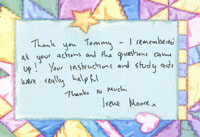 Thank you Tommy - I remembered
all your actions and the questions came
up! Your instructions and study aids
were really helpful
Thanks so much
Irene Moore x